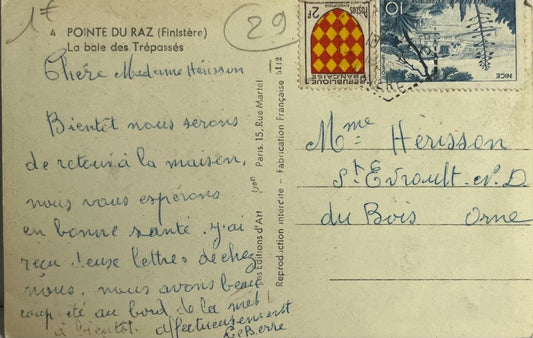 1€
29
4 POINTE DU RAZ (Finistère)
La baie des Trépassés
Chère Madame Hérisson
Bientôt nous serons
de retour à la maison,
nous vous espérons
en bonne santé. j'ai
reçu deux lettres de chez
nous, nous avons beau
coup été au bord de la mer
à bientôt. affectueusement
Le Berre
Les Editions d'Art Yvon Paris, 15, Rue Martel
Reproduction interdite - Fabrication Française 5112
2F
Postes
REPUBLIQUE FRANÇAISE
10
NICE
Mme Hérisson
St Evroult-N.D
du Bois Orne